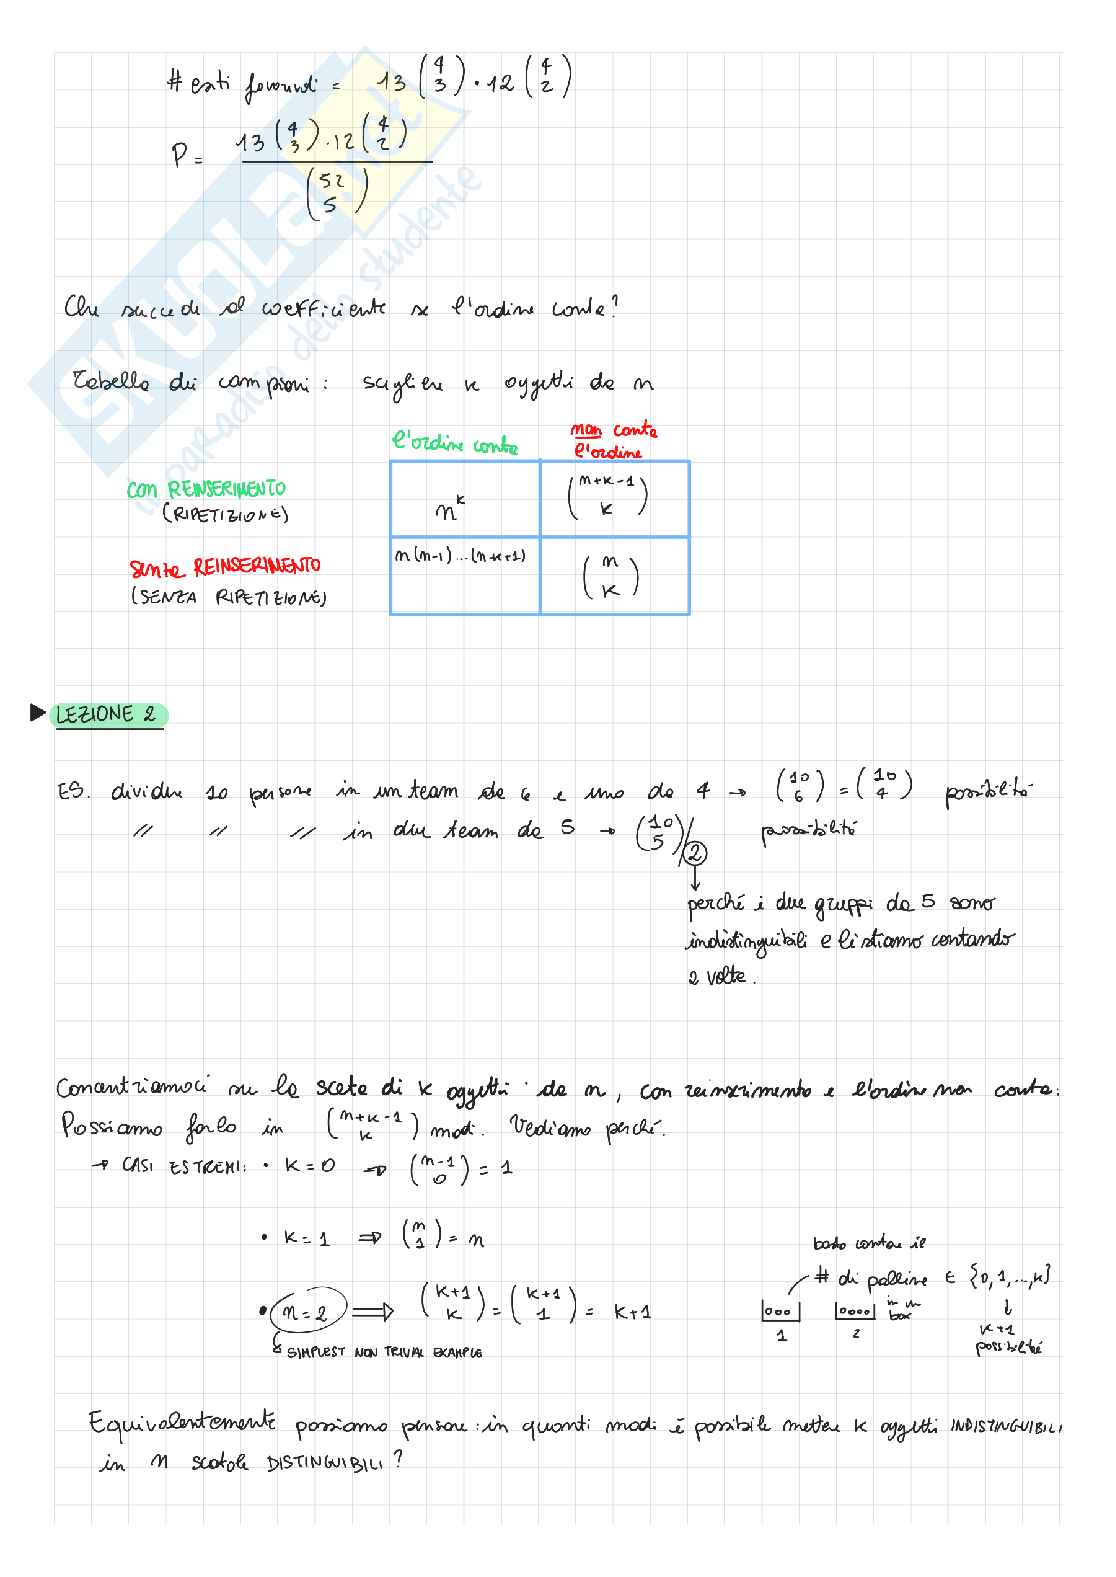 # esiti favorevoli = 13 (4 3) · 12 (4 2)
P = 13 (4 3) · 12 (4 2) / (52 5)
Che succede al coefficiente se l'ordine conta?
Tabella dei campioni: scegliere k oggetti da n
l'ordine conta
non conta l'ordine
con REINSERIMENTO
(RIPETIZIONE)
n^k
(n+k-1 k)
senza REINSERIMENTO
(SENZA RIPETIZIONE)
n(n-1)...(n-k+1)
(n k)
LEZIONE 2
ES. dividere 10 persone in un team da 6 e uno da 4 → (10 6) = (10 4) possibilità
// // // in due team da 5 → (10 5)/2 possibilità
perché i due gruppi da 5 sono
indistinguibili e li stiamo contando
2 volte.
Concentriamoci su la scelta di k oggetti da n, con reinserimento e l'ordine non conta:
Possiamo farlo in (n+k-1 k) modi. Vediamo perché.
→ CASI ESTREMI: • k=0 ⇒ (n-1 0) = 1
• k=1 ⇒ (n 1) = n
• n=2 ⇒ (k+1 k) = (k+1 1) = k+1
SIMPLEST NON TRIVAL EXAMPLE
basta contare il
# di palline ∈ {0,1,...,k}
in un box
1
2
k+1
possibilità
Equivalentemente possiamo pensare: in quanti modi è possibile mettere k oggetti INDISTINGUIBILI
in n scatole DISTINGUIBILI?
SKUOLA.net
il paradiso dello studente